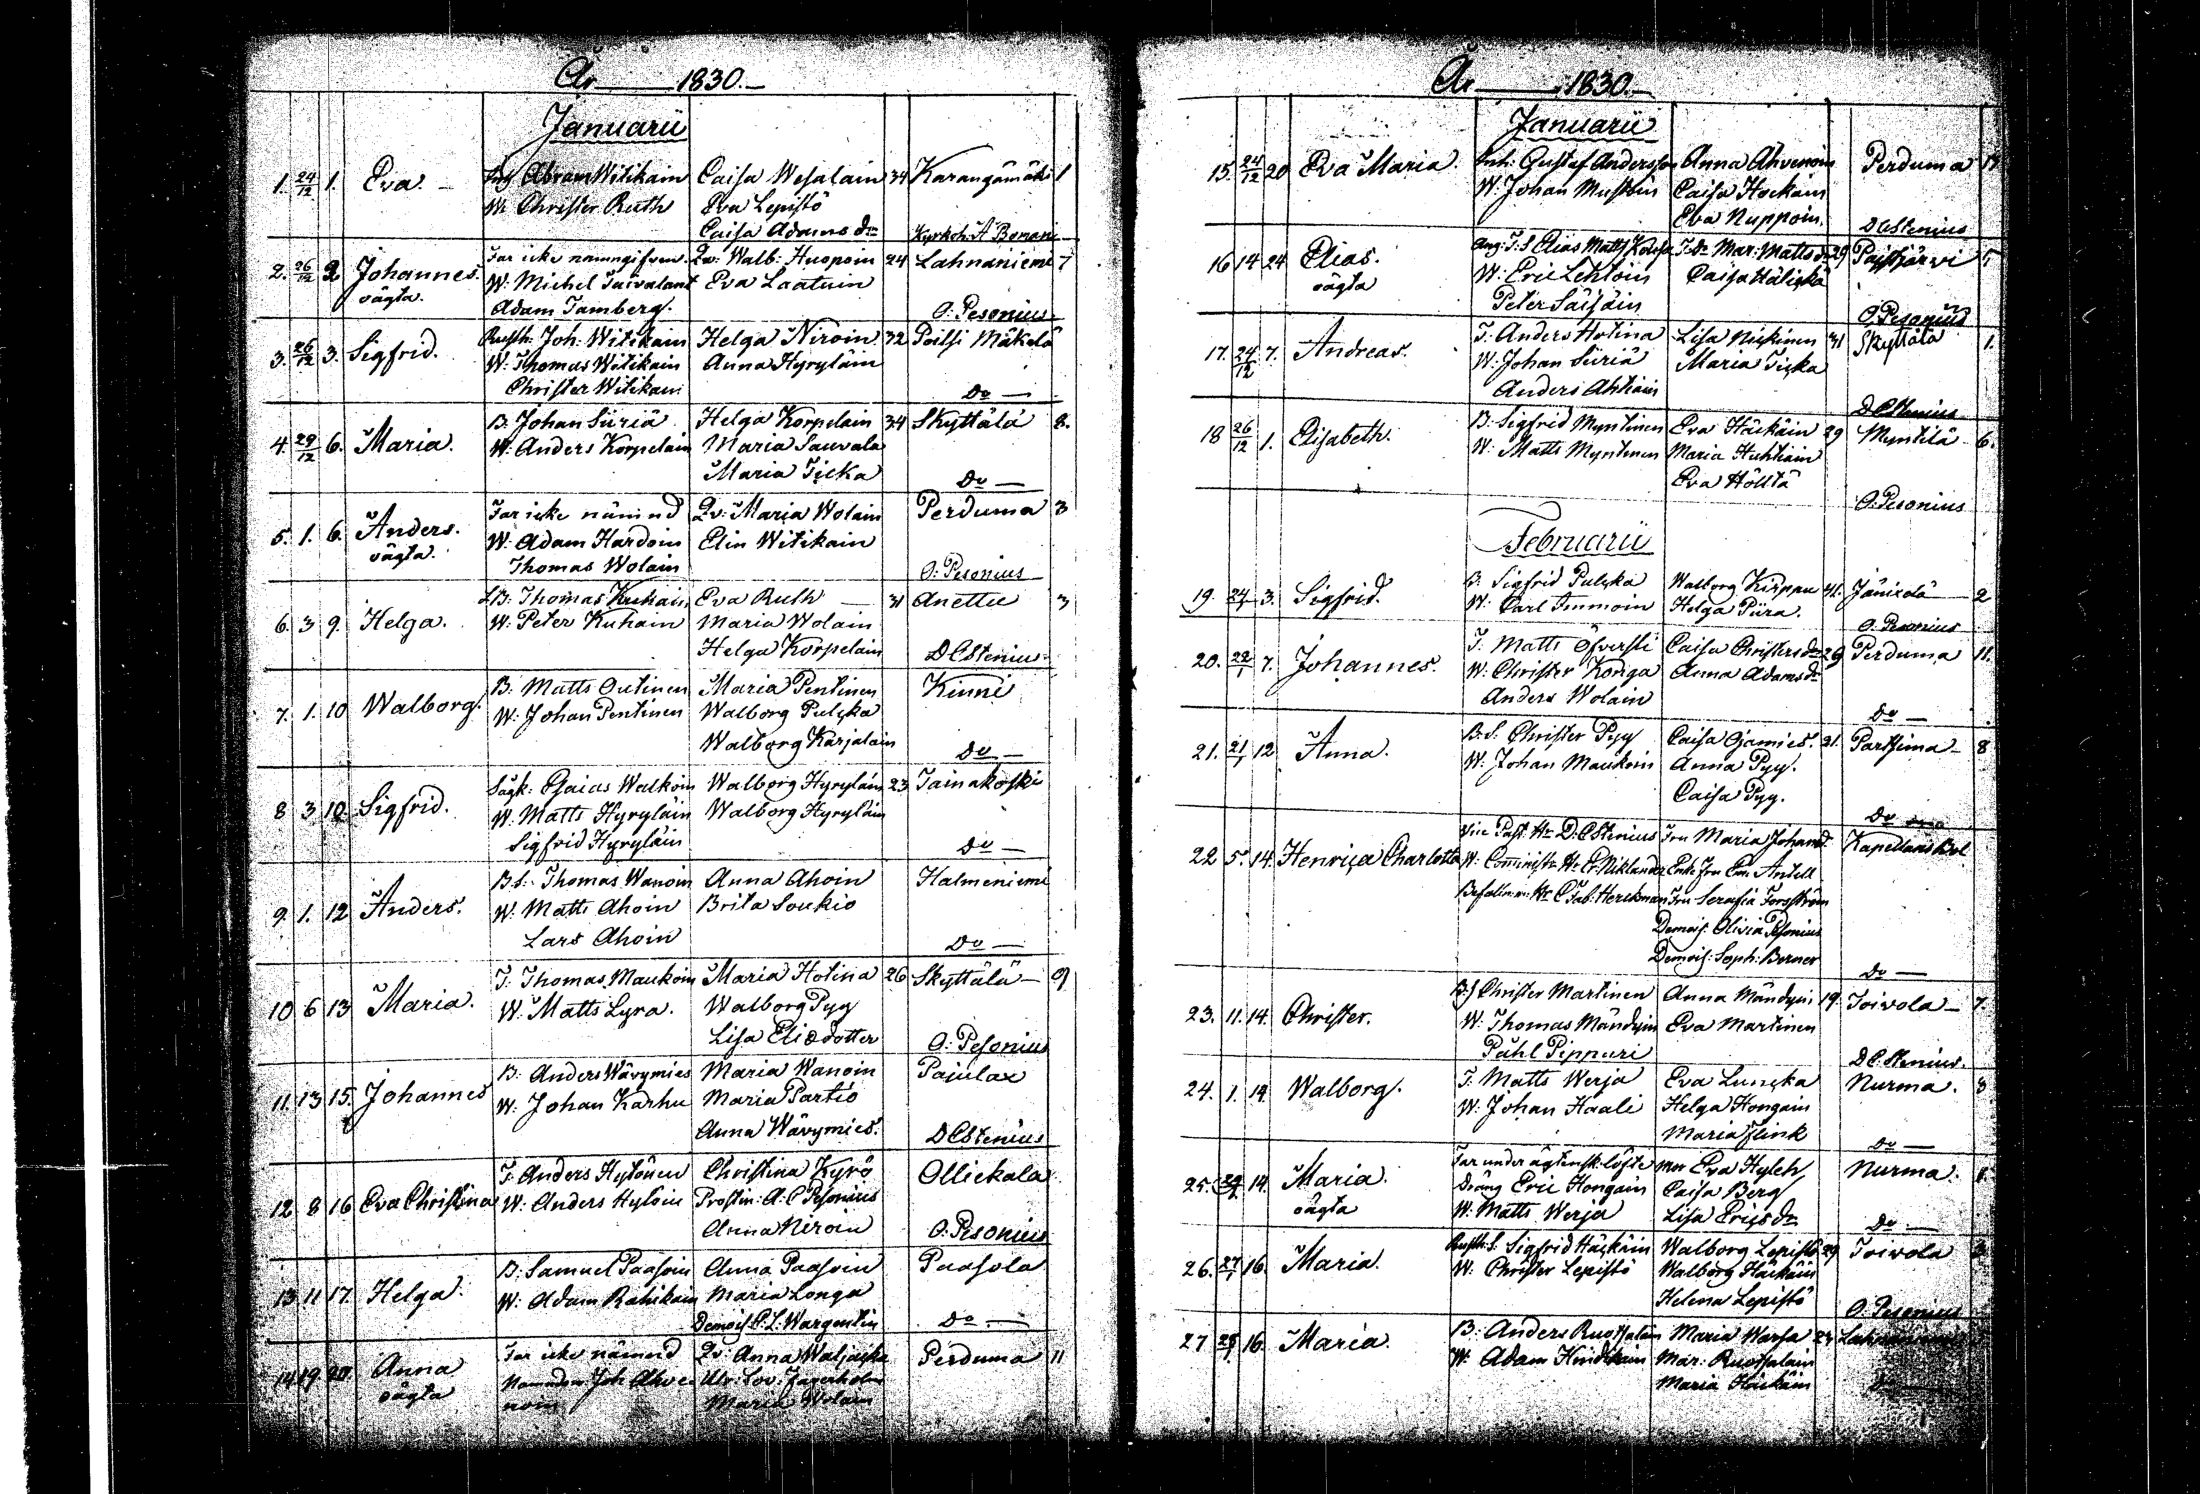 År 1830.
Januarii
1. 24/12 1. Eva. Abram Witikain Caisa Wesalain 34 Karangämäki 1
W. Christer Ruth Eva Lepistö
Caisa Adams dr Kyrkoh: A Boman
2. 26/12 2 Johannes. Far icke namngifven. Qv: Walb: Huopoin 24 Lahnaniemi 7
oägta. W: Michel Taivalant Eva Laatuin
Adam Tamberg. O: Pesonius
3. 26/12 3. Sigfrid. Rusth: Joh: Witikain Helga Niroin 32 Poitsi Mäkelä
W: Thomas Witikain Anna Hyryläin
Christer Witikain Do
4. 29/12 6. Maria. B. Johan Siiriä Helga Korpelain 34 Skyttälä 8.
W: Anders Korpelain Maria Sauvala
Maria Ticka Do
5. 1. 6. Anders. Far icke nämnd Qv: Maria Wolain Perduma 3
oägta. W: Adam Hardoin Elin Witikain
Thomas Wolain O: Pesonius
6. 3 9. Helga. LB: Thomas Kukain Eva Ruth 31 Anettu 3
W: Peter Kuhain Maria Wolain
Helga Korpelain D Estenius
7. 1. 10 Walborg. B: Matts Outinen Maria Pentinen Kinni
W: Johan Pentinen Walborg Pulcka
Walborg Karjalain Do
8 3 10. Sigfrid. Sågk: Esaias Walkoin Walborg Hyryläin 23 Tainakoski
W. Matts Hyryläin Walborg Hyryläin
Sigfrid Hyryläin Do
9. 1. 12 Anders. B.S: Thomas Wanoin Anna Ahoin Halmeniemi
W. Matts Ahoin Brita Soukio
Lars Ahoin Do
10 6 13 Maria. T. Thomas Maukoin Maria Hotina 26 Skyttälä 9
W. Matts Lyra. Walborg Pyy
Lisa Eliædotter O: Pesonius
11. 13 15. Johannes B: Anders Wäwymies Maria Wanoin Pajulax
W: Johan Karhu Maria Partio
Anna Wäwymies. D Estenius
12 8 16 Eva Christina T. Anders Hytönen Christina Kyrö Olliekala
W: Anders Hytöin Prostin: A: C Pesonius
Anna Niroin O: Pesonius
13 11 17. Helga. B: Samuel Paasoin Anna Paasoin Paasola
W: Adam Rahikain Maria Longa
Demois C: L: Wargentin Do
14 19 20. Anna Far icke nämnd Qv: Anna Waljacka Perduma 11
oägta Joh Ahve Ulr: Lov: Fagerholm
noin Maria Wolain
År 1830.
Januarii
15. 24/12 20 Eva Maria. Inh: Gustaf Andersson Anna Ahvenoin Perduma 11
W. Johan Mustoin Caisa Hockain
Eva Nuppoin. D Estenius
16 14 24 Elias. Elias Matts T.dr Mar: Matts dr 29 Paistjärvi 5
oägta W: Eric Lehtoin Caisa Häliskä
Peter Säisäin O. Pesonius
17. 24/12 7. Andreas. T. Anders Hotina Lisa Nickinen 31 Skyttälä 1.
W: Johan Siiriä Maria Ticka
Anders Ahtiain D Estenius
18 26/12 1. Elisabeth. B. Sigfrid Myntinen Eva Häckäin 29 Myntilä 6.
W. Matts Myntinen Maria Huhtain
Eva Hölttä O: Pesonius
Februarii
19. 24/1 3. Sigfrid. B. Sigfrid Pulcka Walborg Kirppu 41. Jänickälä 2
W: Carl Immoin Helga Piira. O. Pesonius
20. 22/1 7. Johannes. T. Matts Öfversti Caisa Christers dr 29 Perduma 11.
W: Christer Konga Anna Adams dr
Anders Wolain Do
21. 21/1 12. Anna. B.S. Christer Pyy Caisa Ojamies. 21. Partsima 8
W. Johan Maukoin Anna Pyy.
Caisa Pyy. Do
22 5. 14. Henrica Charlotta Vice Past. Hr D: Estenius Fru Maria Johansd Kapellans Bol
W: Comministr Hr C. Niklander Enke Fru Em: Antell
Befallm: Hr C Fab: Herckman Fru Serafia Forsström
Demois: Olivia Pesonius
Demois: Soph: Berner Do
23. 11. 14. Christer. B.S Christer Martinen Anna Mändyin 19. Toivola 7.
W: Thomas Mändyin Eva Martinen
Påhl Pippuri D E: Stenius.
24. 1. 14 Walborg. T. Matts Werja Eva Luncka Nurma. 3
W: Johan Haali Helga Hongain
Maria Flink Do
25. 14 Maria. Far under ägtensk: löfte Eva Hyleh Nurma. 1.
oägta Dräng Eric Hongain Caisa Berg
W: Matts Werja Lisa Erics dr Do
26. 27/1 16. Maria. Rusth: S. Sigfrid Häckäin Walborg Lepistö 29 Toivola 3
W: Christer Lepistö Walborg Häckäin
Helena Lepistö O. Pesonius
27 28/1 16. Maria. B: Anders Ruotsalain Maria Warsa 24
W. Adam Hindikain Mar: Ruotsalain
Maria Häckäin Do